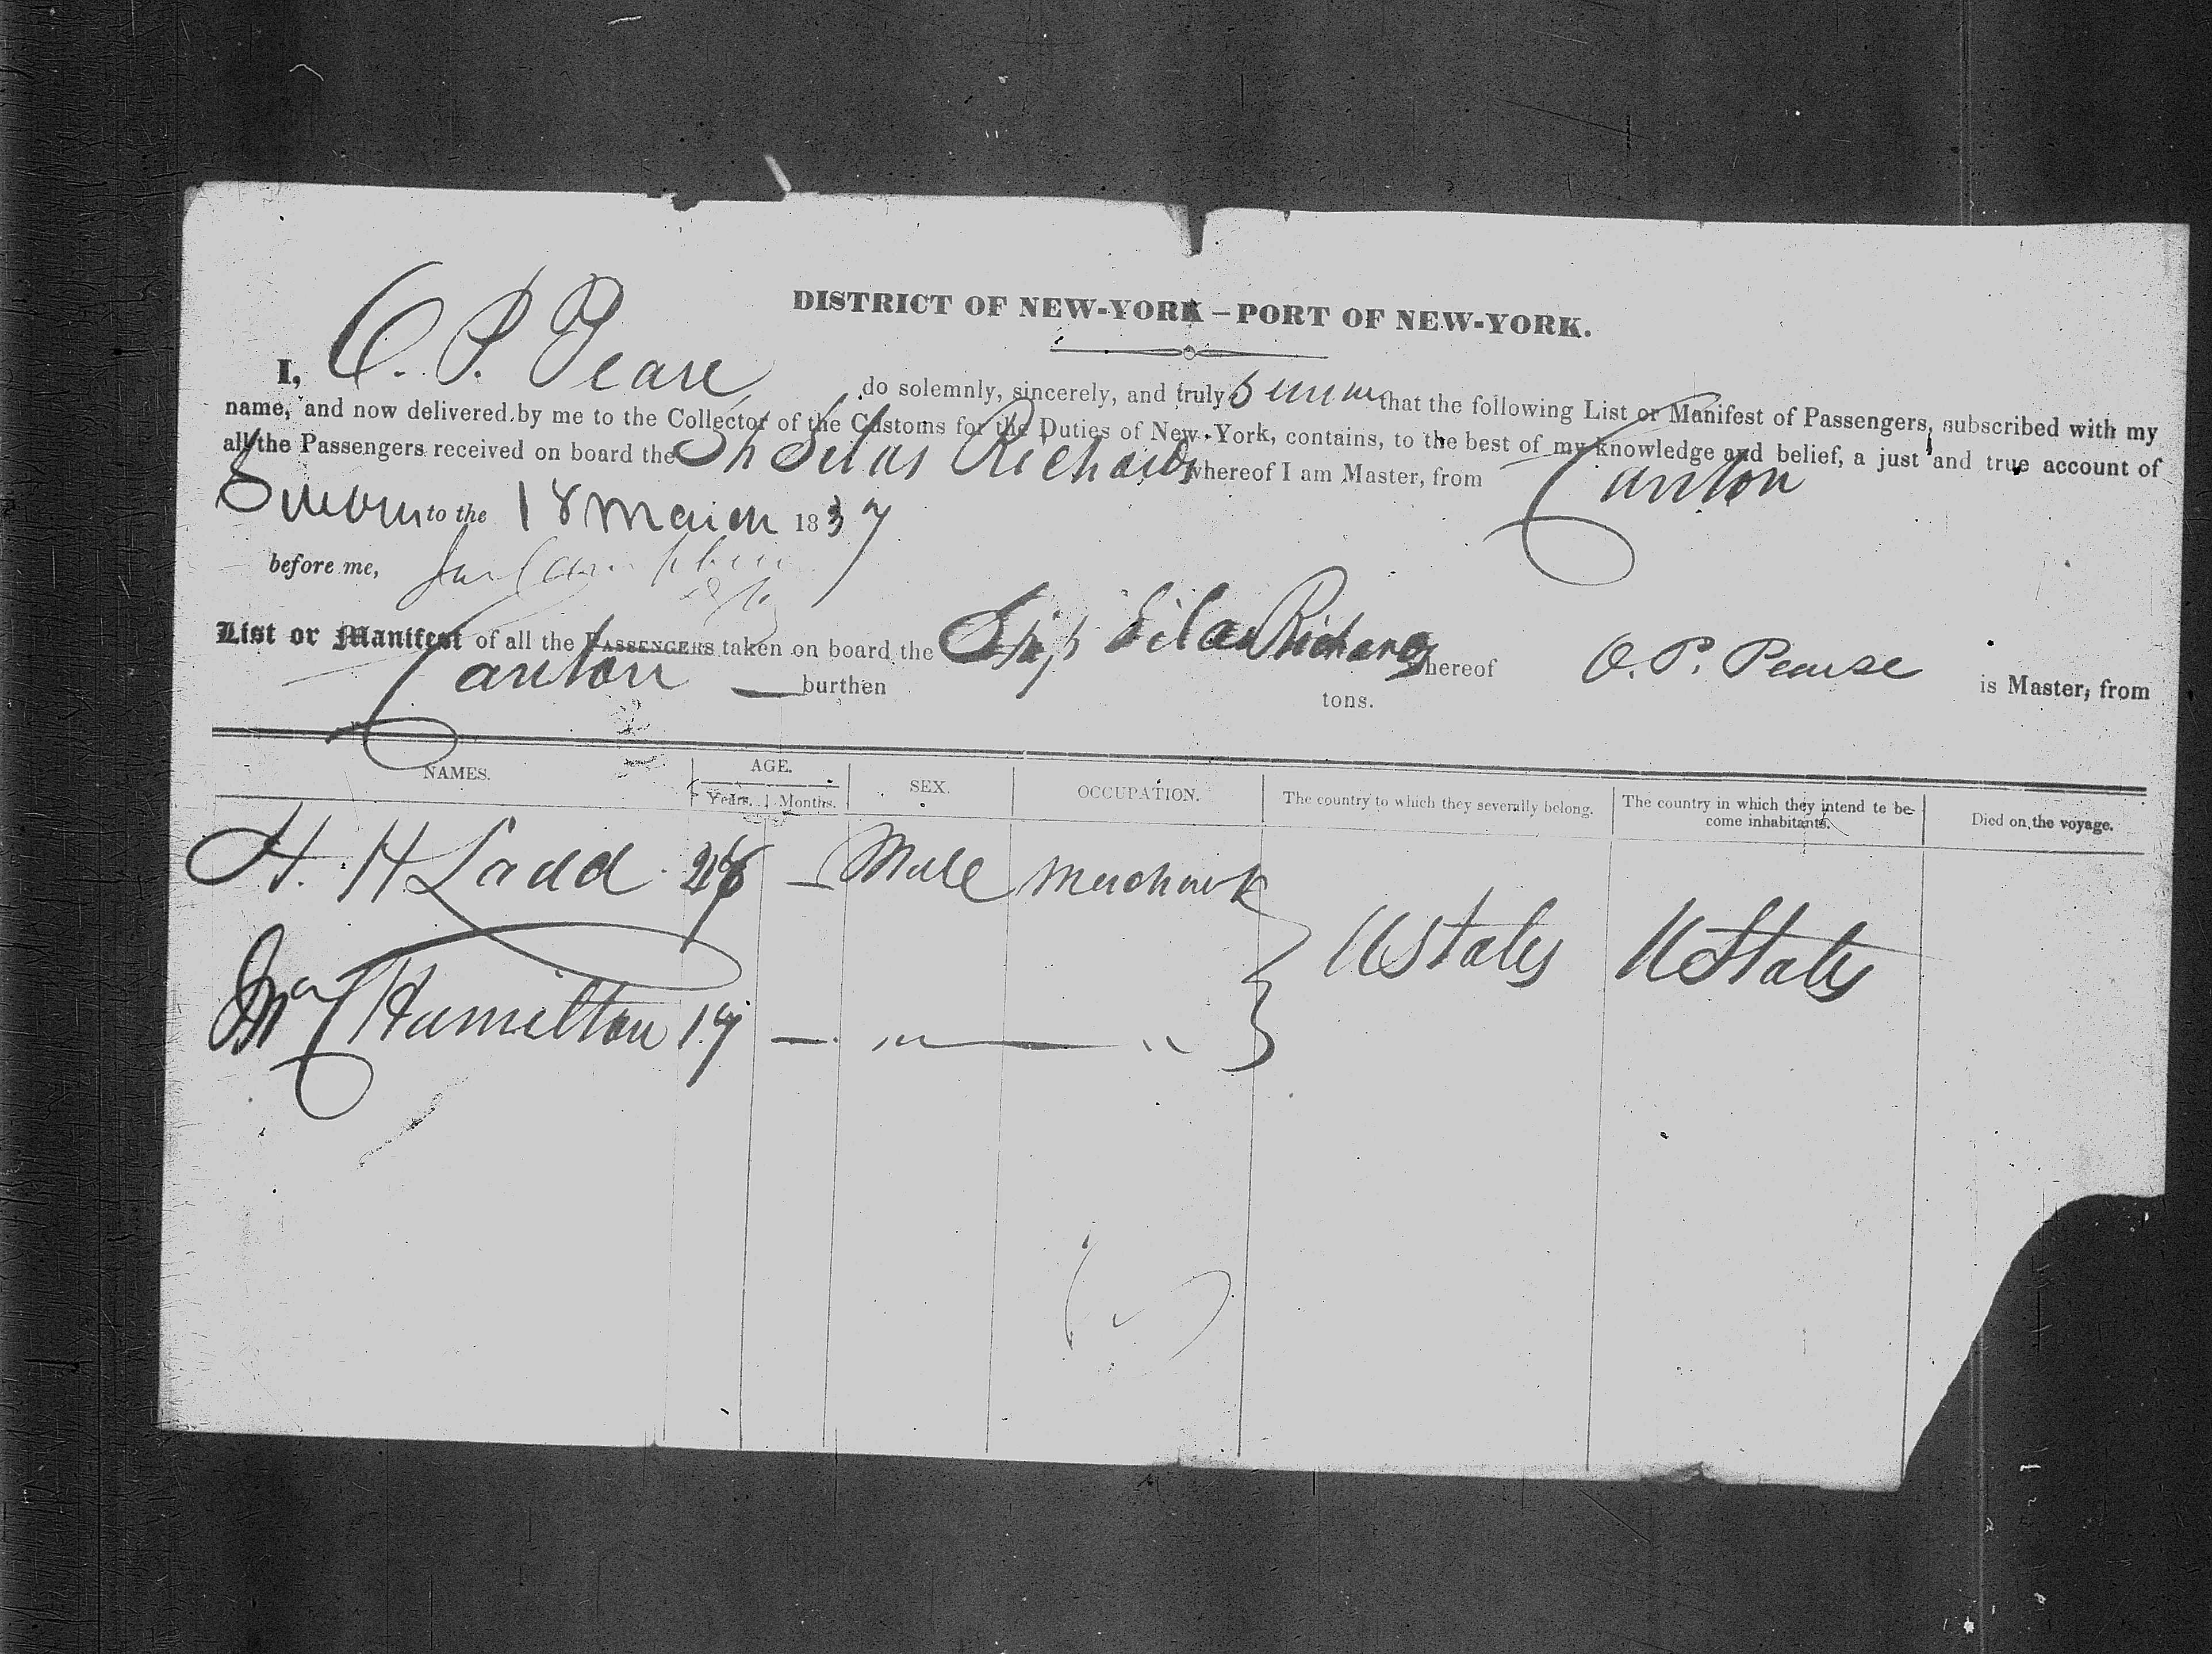 DISTRICT OF NEW-YORK – PORT OF NEW-YORK.
I, O. P. Pearse do solemnly, sincerely, and truly swear that the following List or Manifest of Passengers, subscribed with my
name, and now delivered by me to the Collector of the Customs for the Duties of New-York, contains, to the best of my knowledge and belief, a just and true account of
all the Passengers received on board the Sh Silas Richards whereof I am Master, from Canton
Sworn to the 18 March 1837
before me,
List or Manifest of all the PASSENGERS taken on board the Ship Silas Richards whereof O. P. Pearse is Master, from
Canton — burthen tons.
NAMES. AGE. SEX. OCCUPATION. The country to which they severally belong. The country in which they intend to be- Died on the voyage.
Years. Months. come inhabitants.
H. H Ladd — Male Merchant
U States U States
Hamilton 19 — " — "